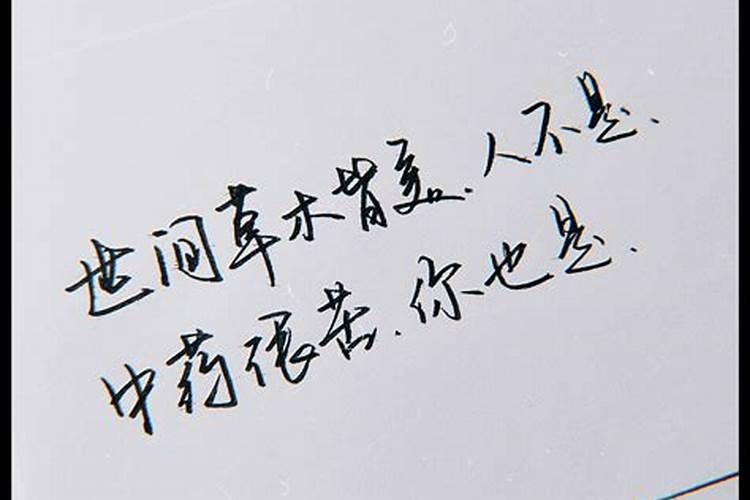 世间草木皆美.人不是.
中药很苦.你也是.